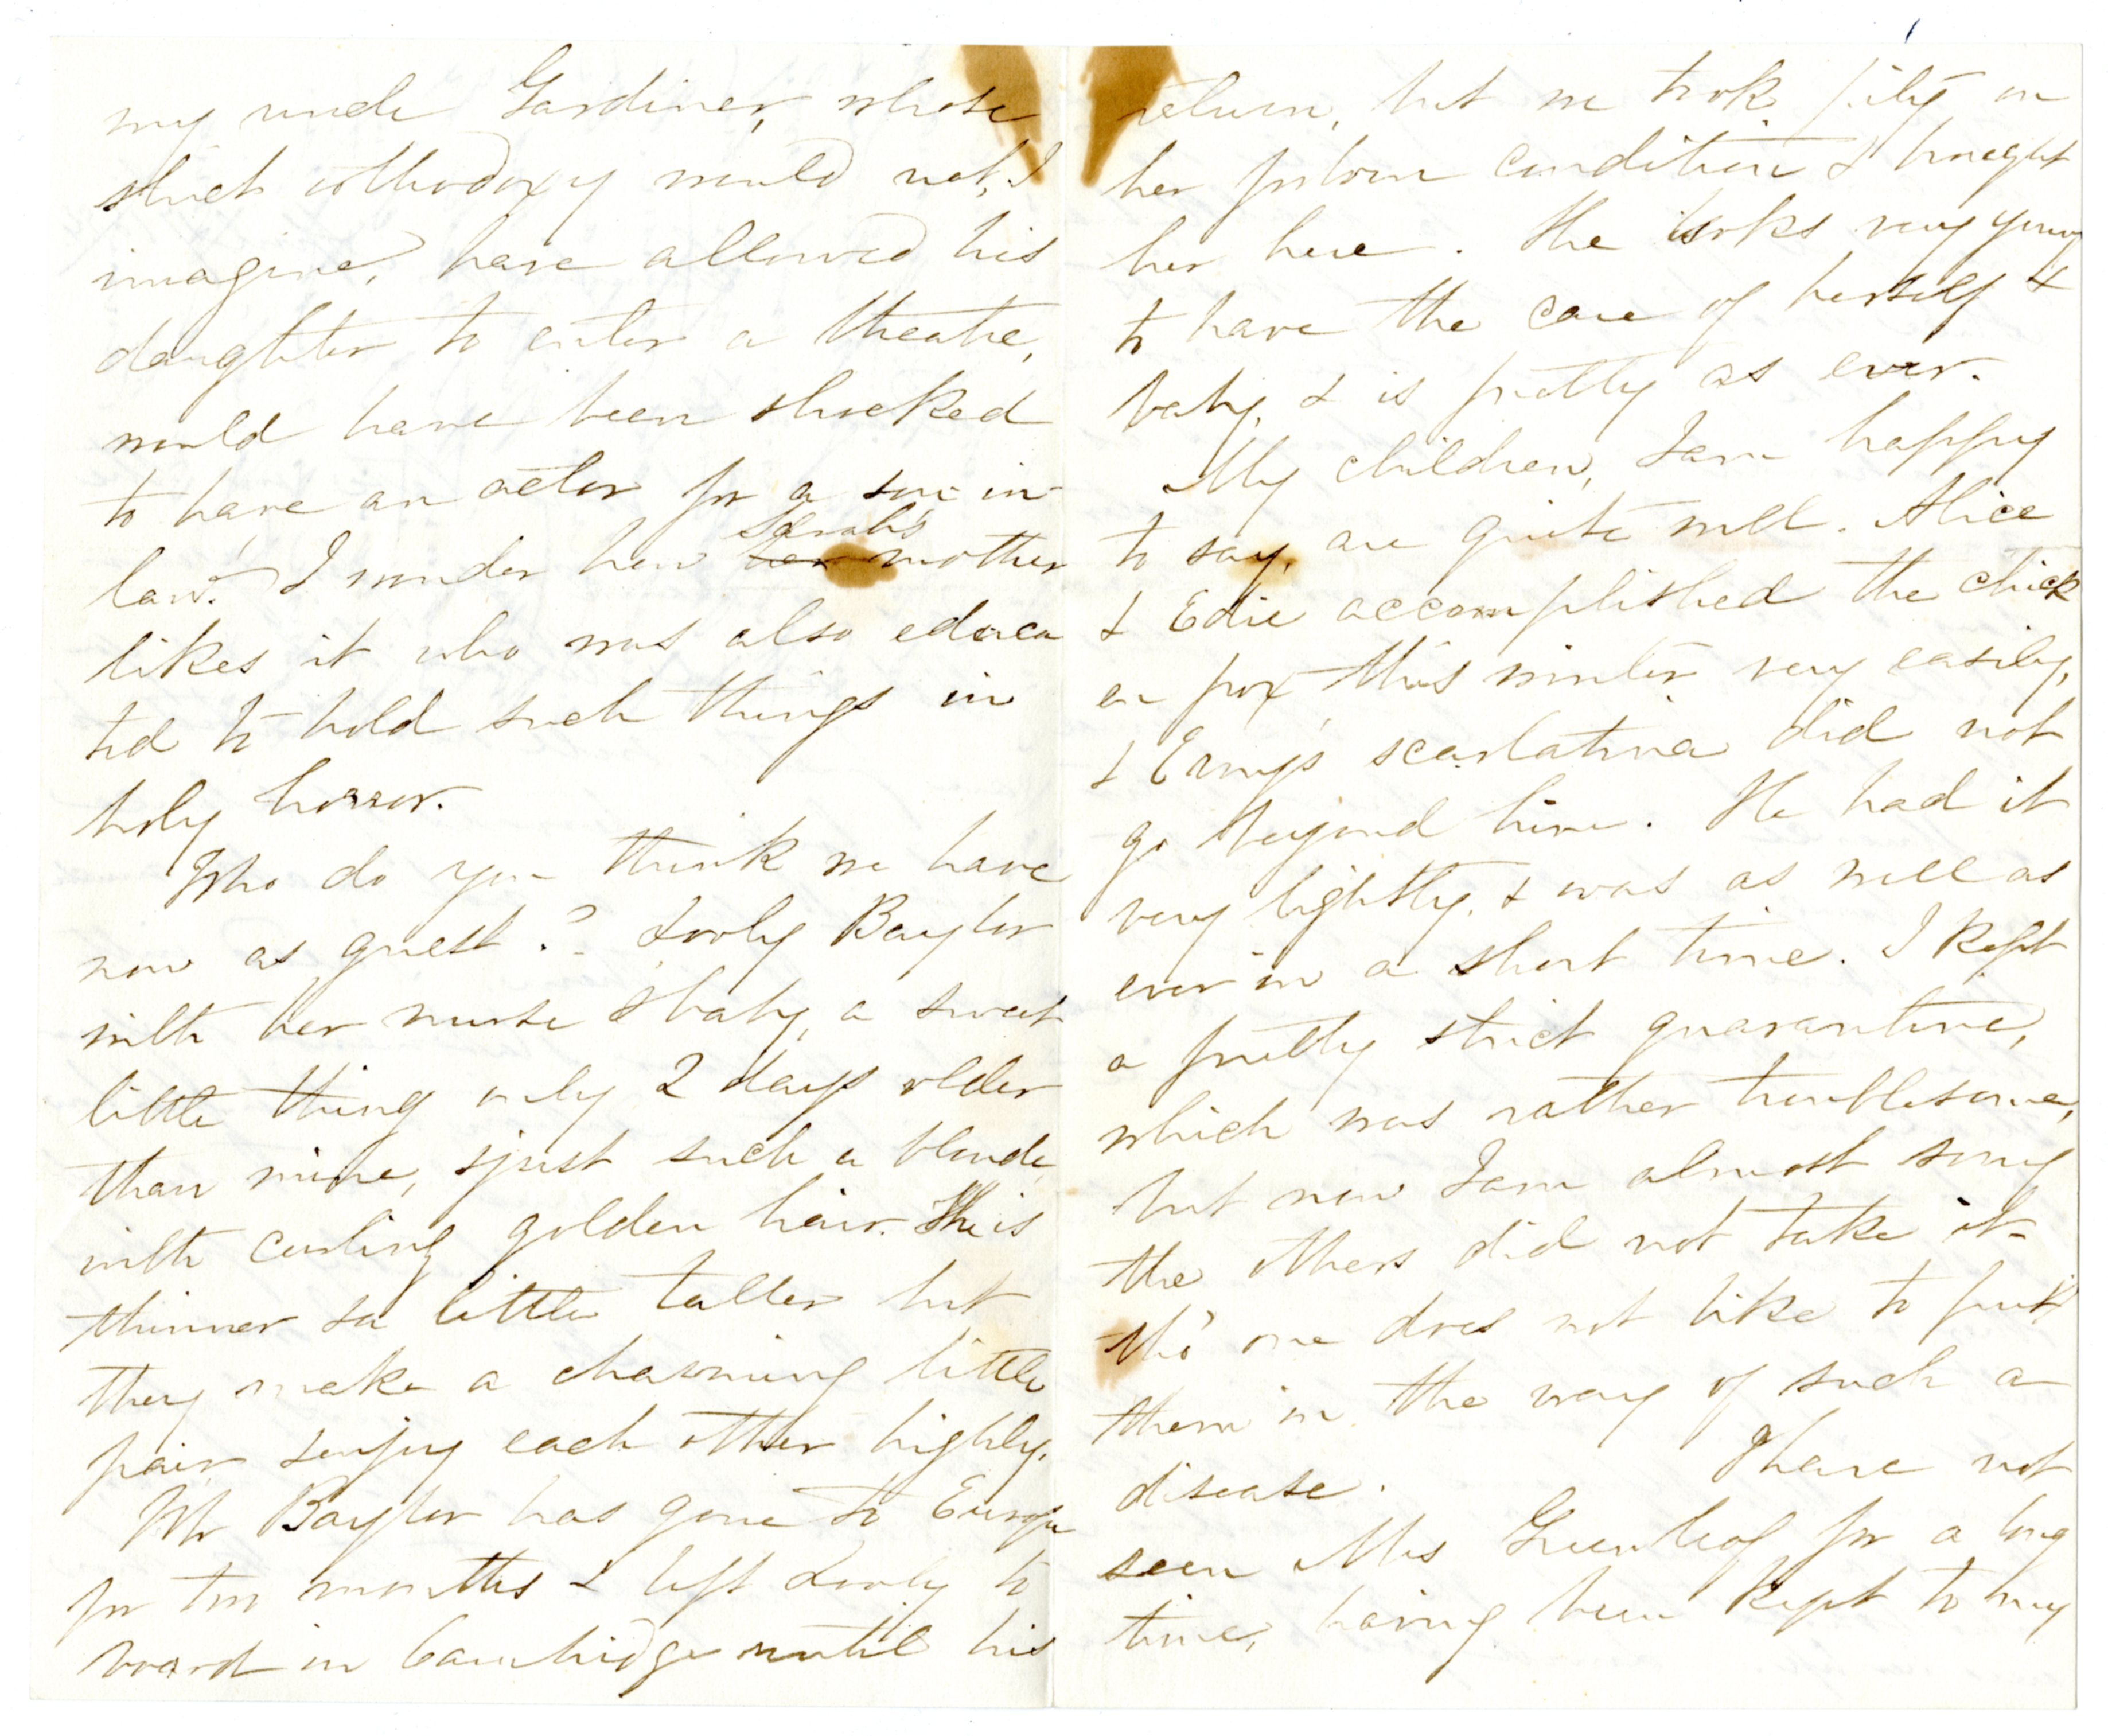 my uncle Gardiner, whose
strict orthodoxy would not, I
imagine, have allowed his
daughter to enter a theatre,
would have been shocked
to have an actor for a son-in-
law. I wonder how her Sarah's mother
likes it who was also educa
ted to hold such things in
holy horror.
Who do you think we have
now as guest? Dooly Baylor
with her nurse & baby, a sweet
little thing only 2 days older
than mine, & just such a blonde,
with curling golden hair. She is
thinner & a little taller but
they make a charming little
pair & enjoy each other highly.
Mr Baylor has gone to Europe
for two months & left Dooly to
board in Cambridge until his
return, but we took pity on
her forlorn condition & brought
her here. She looks very young
to have the care of herself &
baby, & is pretty as ever.
My children, I am happy
to say, are quite well. Alice
& Edie accomplished the chick
en pox this winter very easily,
& Erny's scarlatina did not
go beyond him. He had it
very lightly, & was as well as
ever in a short time. I kept
a pretty strict quarantine,
which was rather troublesome,
but now I am almost sorry
the others did not take it -
tho' one does not like to put
them in the way of such a
disease. I have not
seen Mrs Greenleaf for a long
time, having been kept to my